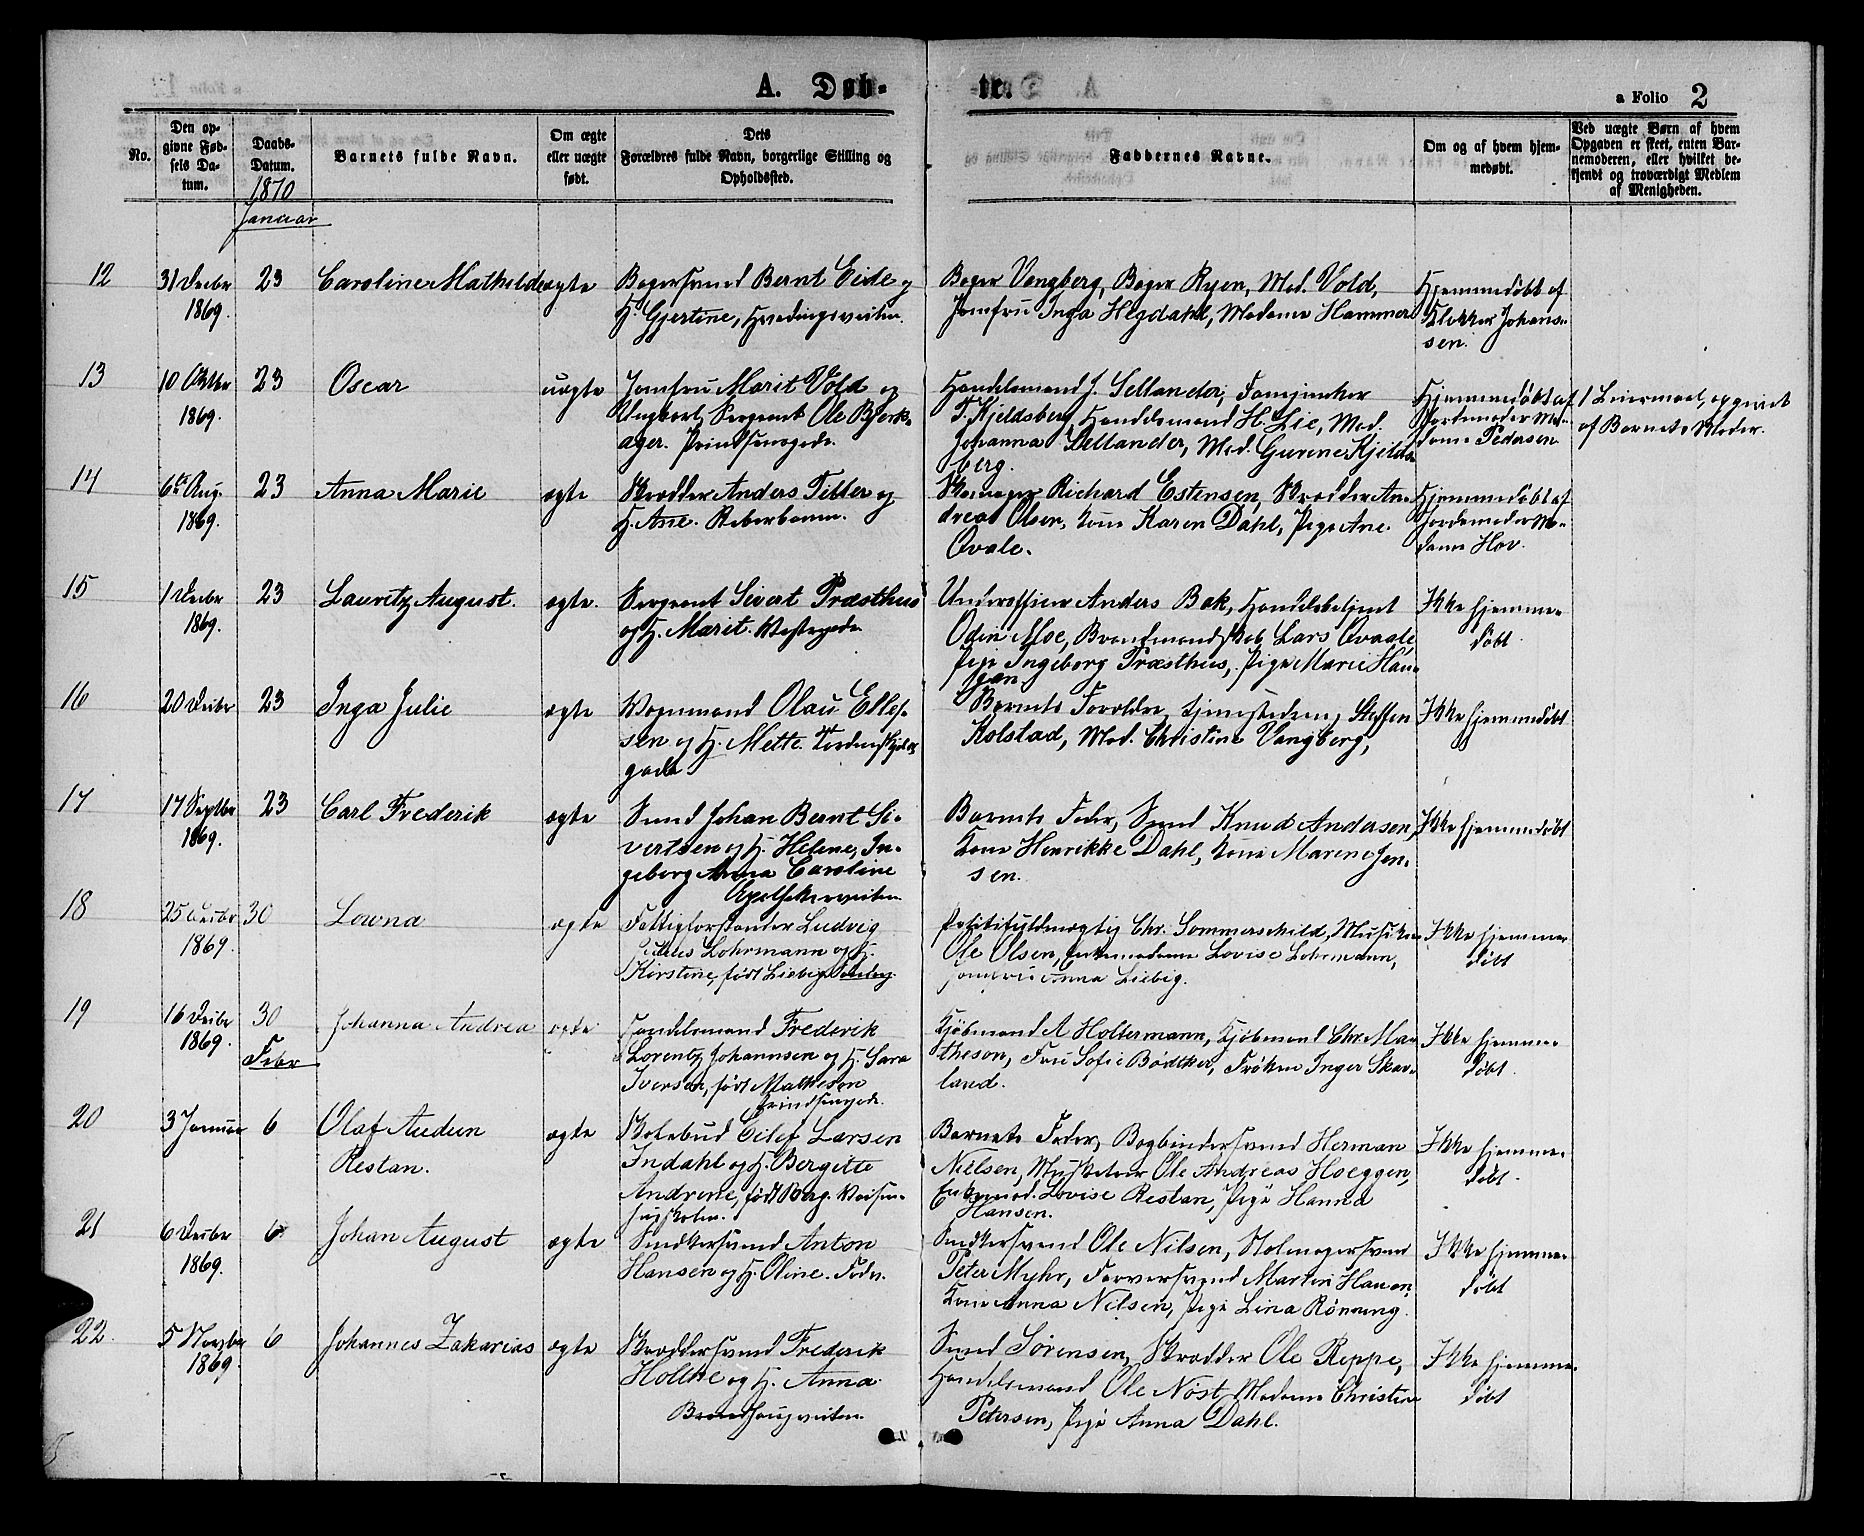 A. Døb-
te.
a Folio 2
No.
Den op-
givne Fød-
sels Da-
tum.
Daabs-
Datum.
Barnets fulde Navn.
Om ægte
eller uægte
født.
Dets
Forældres fulde Navn, borgerlige Stilling og
Opholdssted.
Faddernes Navne.
Om og af hvem hjem-
medøbt.
Ved uægte Børn af hvem
Opgaven er skeet, enten Bar-
nemoderen, eller hvilket be-
kjendt og troværdigt Medlem
af Menigheden.
1870
Januar
12
31 Decbr
1869.
23
Caroline Mathilde
ægte
Bagersvend Bernt Eide og
H. Gjertine,
Bager Vengberg, Bager Ryen, Mad. Vold,
Jomfru Inga Hegdahl, Madame Hammer
Hjemmedøbt af
Klokker Johans-
sen.
13
10 Oktbr
1869.
23
Oscar
uægte
Jomfru Marit Vold og
Ungkarl, Sergeant Ole Bjerk-
ager. Prindsensgade.
Handelsmand J. Sellander,
T. Kjeldsberg, Handelsmand H. Lie, Mad.
Johanna Sellander, Mad. Gurine Kjelds-
berg.
Hjemmedøbt af
Jordemoder Ma-
dame Pedersen
1 Leiermaal, opgivet
af Barnets Moder.
14
6te Aug.
1869.
23
Anna Marie
ægte
Skrædder Anders Tiller og
H. Ane. Reberbanen.
Skomager Richard Estensen, Skrædder An-
dreas Olsen, Kone Karen Dahl, Pige Ane
Ovale.
Hjemmedøbt af
Jordemoder Ma-
dame Hov.
15
1 Decbr
1869.
23
Lauritz August.
ægte.
Sergeant Sivert Præsthus
og H. Marit.
Underofficer Anders Bak, Handelsbetjent
Odin Moe, Brandmandskab Lars Ovale
Pige Ingeborg Præsthus, Pige Marie Hau-
gan
Ikke hjemme-
døbt.
16
20 Decbr
23
Inga Julie
ægte
Vognmand Olau Ellef-
sen og H. Mette. Tordenskjolds
gade
Barnets Forældre, Steffen
Kolstad, Mad. Christine Vangberg,
Ikke hjemmedøbt
17
17 Septbr
1869.
23
Carl Frederik
ægte
Svend Johan Bernt Si-
vertsen og H. Helene, In-
geborg Anna Caroline
Apothekerveiten
Barnets Fader, Svend Knud Andersen,
Kone Henrikke Dahl, Kone Marene Jen-
sen.
Ikke hjemmedøbt
18
25 Decbr
1869.
30
Lowna
ægte
Fattigforstander Ludvig
Lohrmann og H.
Kirstine, født Liebig.
Politifuldmægtig Chr. Sommerschild, Musiker
Ole Olsen, Enkemadame Lovise Lohrmann,
Jomfru Anna Liebig.
Ikke hjemme-
døbt
19
16 Decbr
1869.
30
Febr
Johanna Andrea
ægte
Handelsmand Frederik
Lorentz Johannsen og H. Sara
Iversen, født Mathesen
Prindsensgade.
Kjøbmand A Holtermann, Kjøbmand Chr. Ma-
theson, Fru Sofie Bødtker, Frøken Inger Skav-
land.
Ikke hjemme-
døbt.
20
3 Januar
6
Olaf Audun
Restan.
ægte
Skolebud Eilef Larsen
Indahl og H. Bergitte
Andrene, født Borg. Waisen-
husskolen.
Barnets Fader, Bogbindersvend Herman
Nielsen, Musketeer Ole Andreas Hoeggen,
Enkemad. Lovise Restan, Pige Hanna
Hansen.
Ikke hjemme-
døbt.
21
6 Decbr
1869.
6
Johan August
ægte
Snedkersvend Anton
Hansen og H. Oline.
Snedkersvend Ole Nilsen, Stolmagersvend
Peter Myhr, Farversvend Martin Hansen,
Kone Anna Nilsen, Pige Lina Rønning.
Ikke hjemme-
døbt
22.
5 Novbr
1869.
6
Johannes Zakarias
ægte
Skræddersvend Frederik
Holtke og H. Anna
Brandhaugveiten.
Svend Sørensen, Skrædder Ole Reppe,
Handelsmand Ole Nøst, Madame Christine
Petersen, Pige Anna Dahl.
Ikke hjemme-
døbt